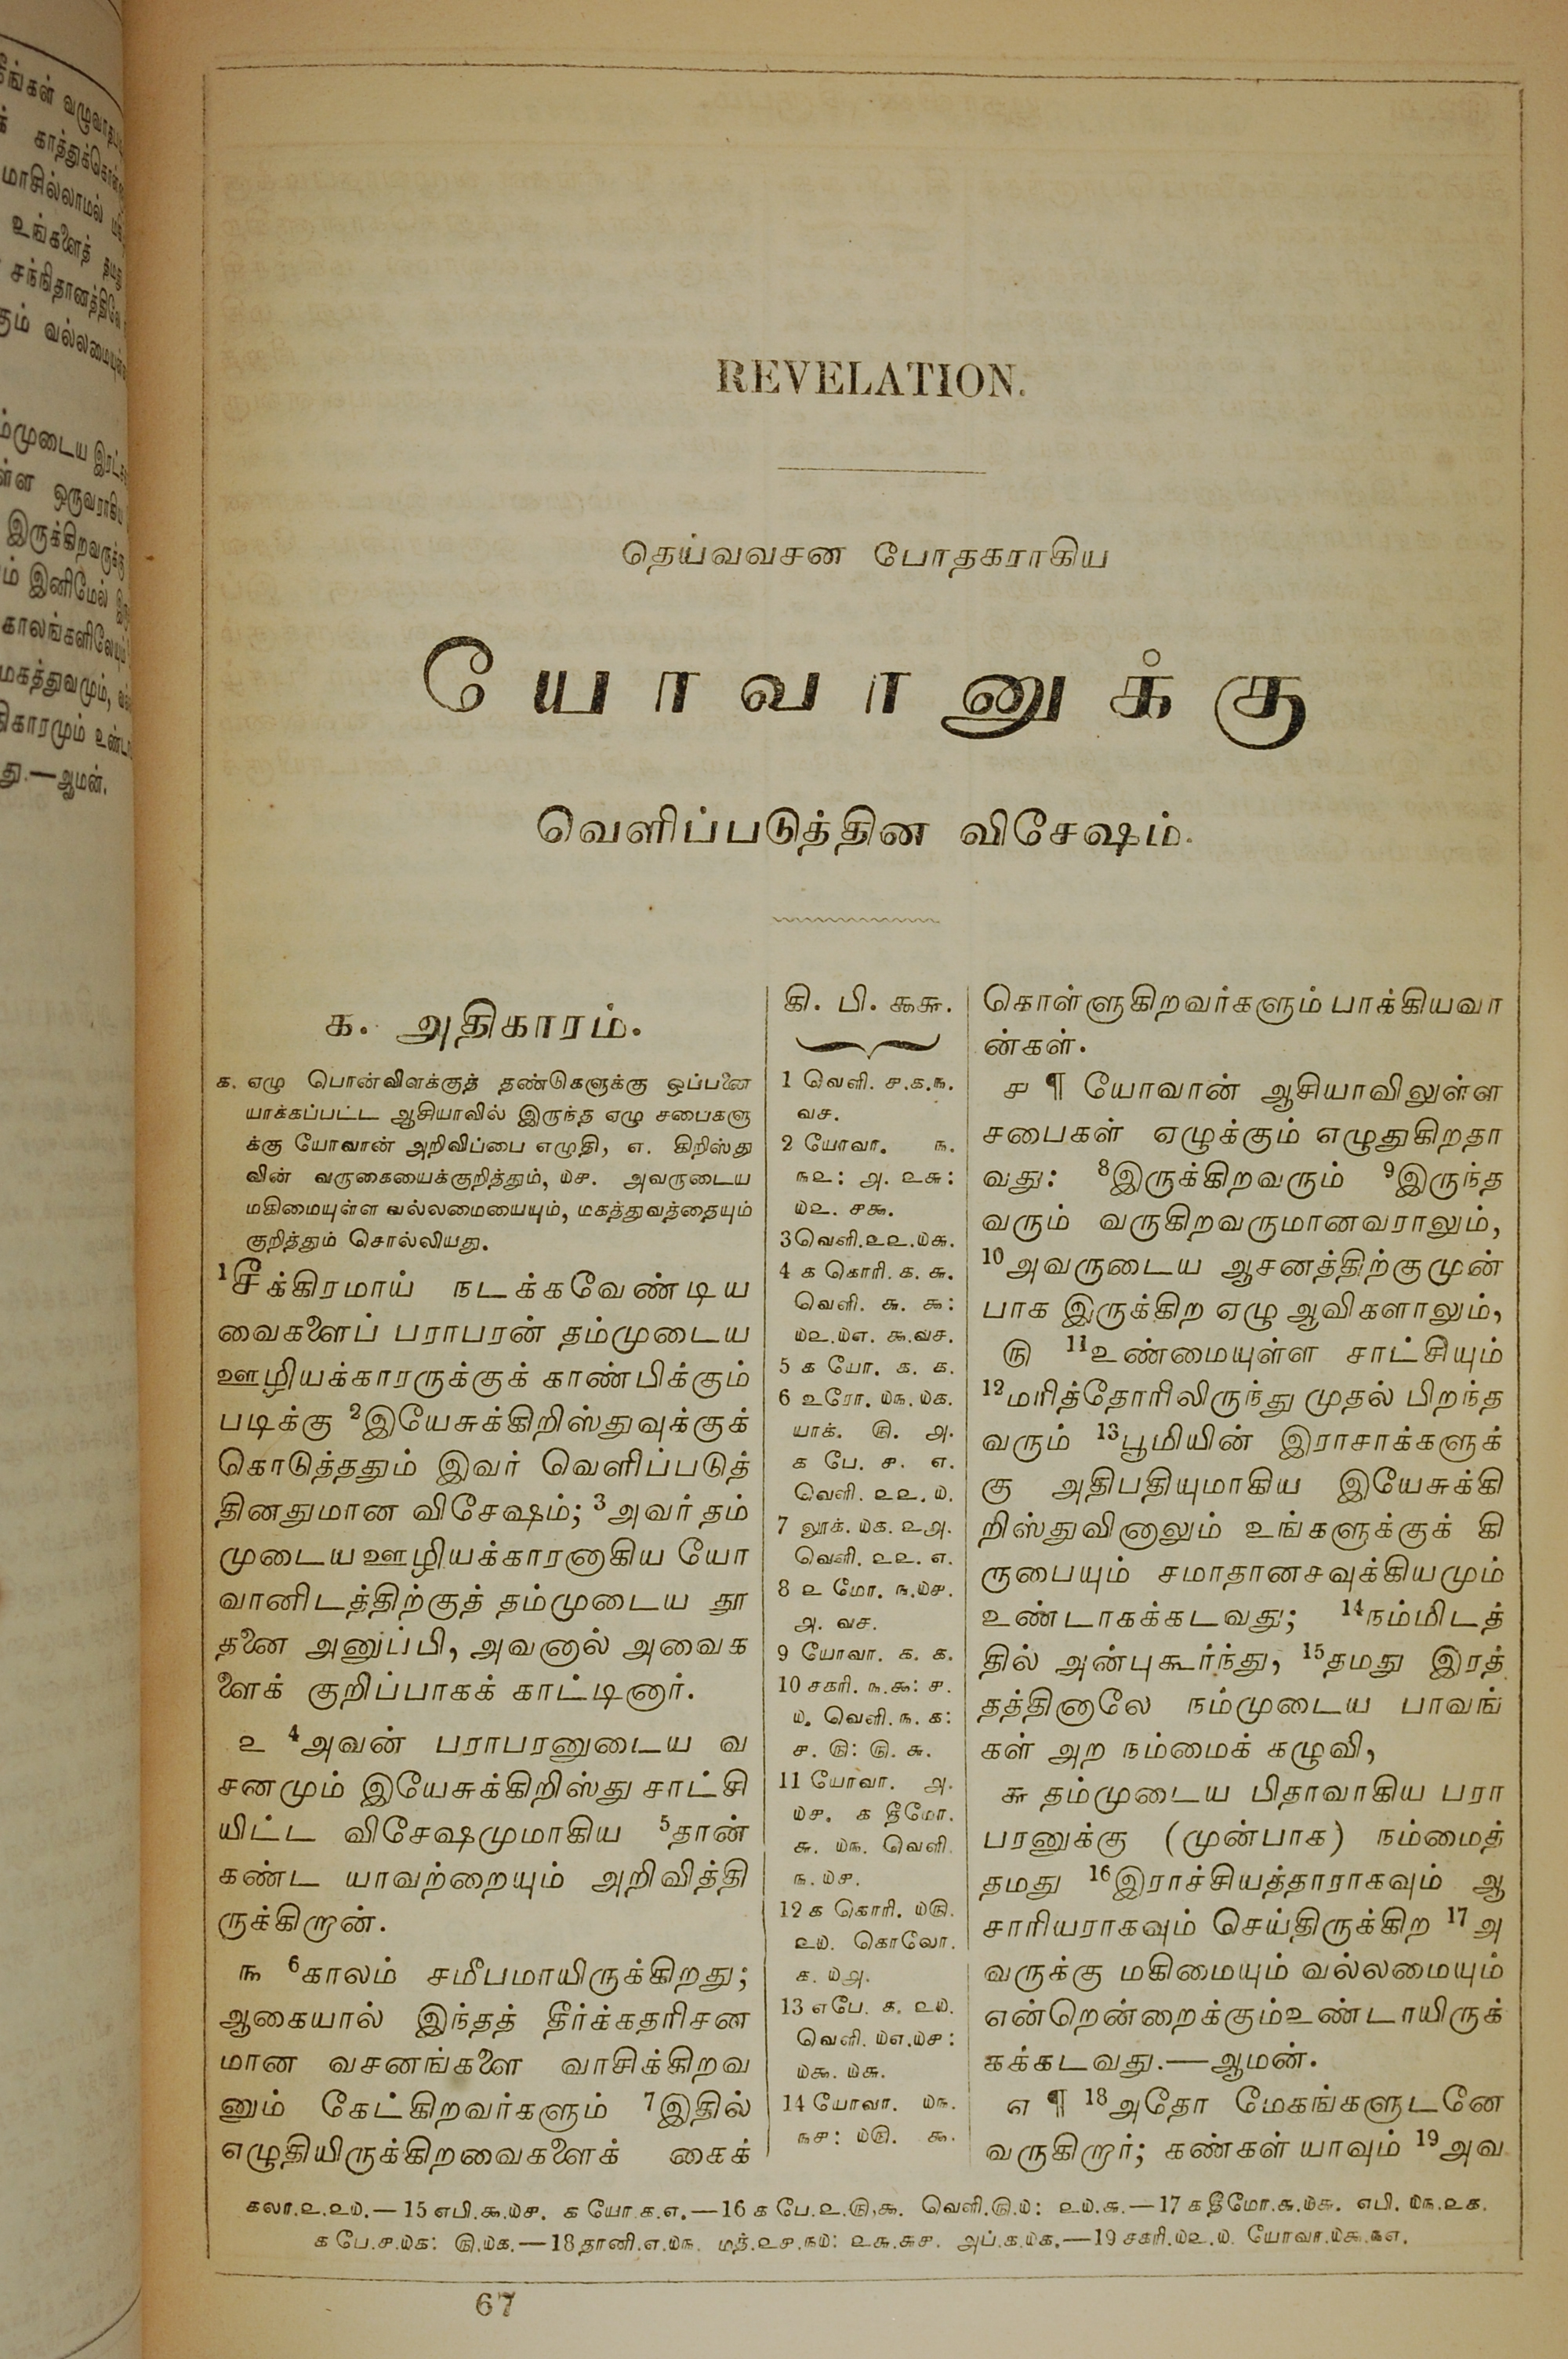 REVELATION.
தெய்வவசன போதகராகிய
யோவானுக்கு
வெளிப்படுத்தின விசேஷம்.
க. அதிகாரம்.
க. ஏழு பொன்விளக்குத் தண்டுகளுக்கு ஒப்பனை
யாக்கப்பட்ட ஆசியாவில் இருந்த ஏழு சபைகளு
க்கு யோவான் அறிவிப்பை எழுதி, எ. கிறிஸ்து
வின் வருகையைக்குறித்தும், ௰௪. அவருடைய
மகிமையுள்ள வல்லமையையும், மகத்துவத்தையும்
குறித்தும் சொல்லியது.
1சீக்கிரமாய் நடக்கவேண்டிய
வைகளைப் பராபரன் தம்முடைய
ஊழியக்காரருக்குக் காண்பிக்கும்
படிக்கு 2இயேசுக்கிறிஸ்துவுக்குக்
கொடுத்ததும் இவர் வெளிப்படுத்
தினதுமான விசேஷம்; 3அவர் தம்
முடைய ஊழியக்காரனாகிய யோ
வானிடத்திற்குத் தம்முடைய தூ
தனை அனுப்பி, அவனால் அவைக
ளைக் குறிப்பாகக் காட்டினார்.
௨ 4அவன் பராபரனுடைய வ
சனமும் இயேசுக்கிறிஸ்து சாட்சி
யிட்ட விசேஷமுமாகிய 5தான்
கண்ட யாவற்றையும் அறிவித்தி
ருக்கிறான்.
௩ 6காலம் சமீபமாயிருக்கிறது;
ஆகையால் இந்தத் தீர்க்கதரிசன
மான வசனங்களை வாசிக்கிறவ
னும் கேட்கிறவர்களும் 7இதில்
எழுதியிருக்கிறவைகளைக் கைக்
கி. பி. ௯௬.
1 வெளி. ௪.௧.௩.
வச.
2 யோவா. ௩.
௩௨: ௮. ௨௬:
௰௨. ௪௯.
3 வெளி.௨௨.௰௬.
4 ௧ கொரி. ௧. ௬.
வெளி. ௬. ௯:
௰௨.௰௭. ௯.வச.
5 ௧ யோ. ௧. ௧.
6 உரோ. ௰௩. ௰௧.
யாக். ௫. ௮.
௧ பே. ௪. ௭.
வெளி. ௨௨. ௰.
7 லூக். ௰௧. ௨௮.
வெளி. ௨௨. ௭.
8 ௨ மோ. ௩.௰௪.
௮. வச.
9 யோவா. ௧. ௧.
10 சகரி. ௩.௯: ௪.
௰. வெளி. ௩. ௧:
௪. ௫: ௫. ௬.
11 யோவா. ௮.
௰௪. ௧ தீமோ.
௬. ௰௩. வெளி.
௩. ௰௪.
12 ௧ கொரி. ௰௫.
௨௰. கொலோ.
௧. ௰௮.
13 எபே. ௧. ௨௰.
வெளி. ௰௭.௰௪:
௰௯. ௰௬.
14 யோவா. ௰௩.
௩௪: ௰௫. ௯.
கொள்ளுகிறவர்களும் பாக்கியவா
ன்கள்.
௪ ¶ யோவான் ஆசியாவிலுள்ள
சபைகள் ஏழுக்கும் எழுதுகிறதா
வது: 8இருக்கிறவரும் 9இருந்த
வரும் வருகிறவருமானவராலும்,
10அவருடைய ஆசனத்திற்குமுன்
பாக இருக்கிற ஏழு ஆவிகளாலும்,
௫ 11உண்மையுள்ள சாட்சியும்
12மரித்தோரிலிருந்து முதல் பிறந்த
வரும் 13பூமியின் இராசாக்களுக்
கு அதிபதியுமாகிய இயேசுக்கி
றிஸ்துவினாலும் உங்களுக்குக் கி
ருபையும் சமாதானசவுக்கியமும்
உண்டாகக்கடவது; 14நம்மிடத்
தில் அன்புகூர்ந்து, 15தமது இரத்
தத்தினாலே நம்முடைய பாவங்
கள் அற நம்மைக் கழுவி,
௬ தம்முடைய பிதாவாகிய பரா
பரனுக்கு (முன்பாக) நம்மைத்
தமது 16இராச்சியத்தாராகவும் ஆ
சாரியராகவும் செய்திருக்கிற 17அ
வருக்கு மகிமையும் வல்லமையும்
என்றென்றைக்கும்உண்டாயிருக்
கக்கடவது.—ஆமன்.
௭ ¶ 18அதோ மேகங்களுடனே
வருகிறார்; கண்கள் யாவும் 19அவ
கலா.௨.௨௰.—15 எபி.௯.௰௪. ௧ யோ.௧.௭.—16 ௧ பே.௨.௫,௯. வெளி.௫.௰: ௨௰.௬.—17 ௧ தீமோ.௬.௰௬. எபி. ௰௩.௨௧.
௧ பே.௪.௰௧: ௫.௰௧.—18 தானி.௭.௰௩. மத்.௨௪.௩௰: ௨௬.௬௪. அப்.௧.௰௧.—19 சகரி.௰௨.௰. யோவா.௰௯.௩௭.
67